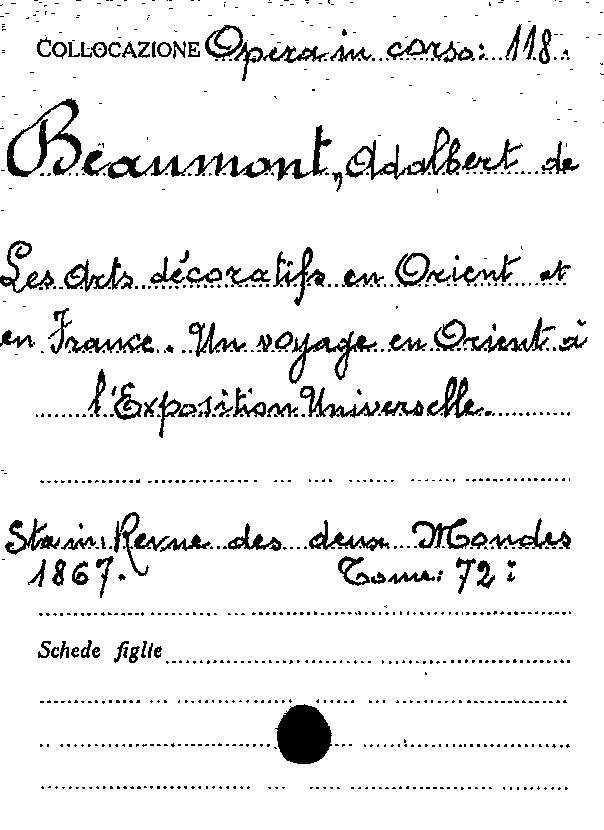 COLLOCAZIONE Opera in corso: 118.
Beaumont, Adalbert de
Les Arts décoratifs en Orient et
en France. Un voyage en Orient à
l'Exposition Universelle.
Sta in: Revue des deux Mondes
1867. Tome: 72:
Schede figlie